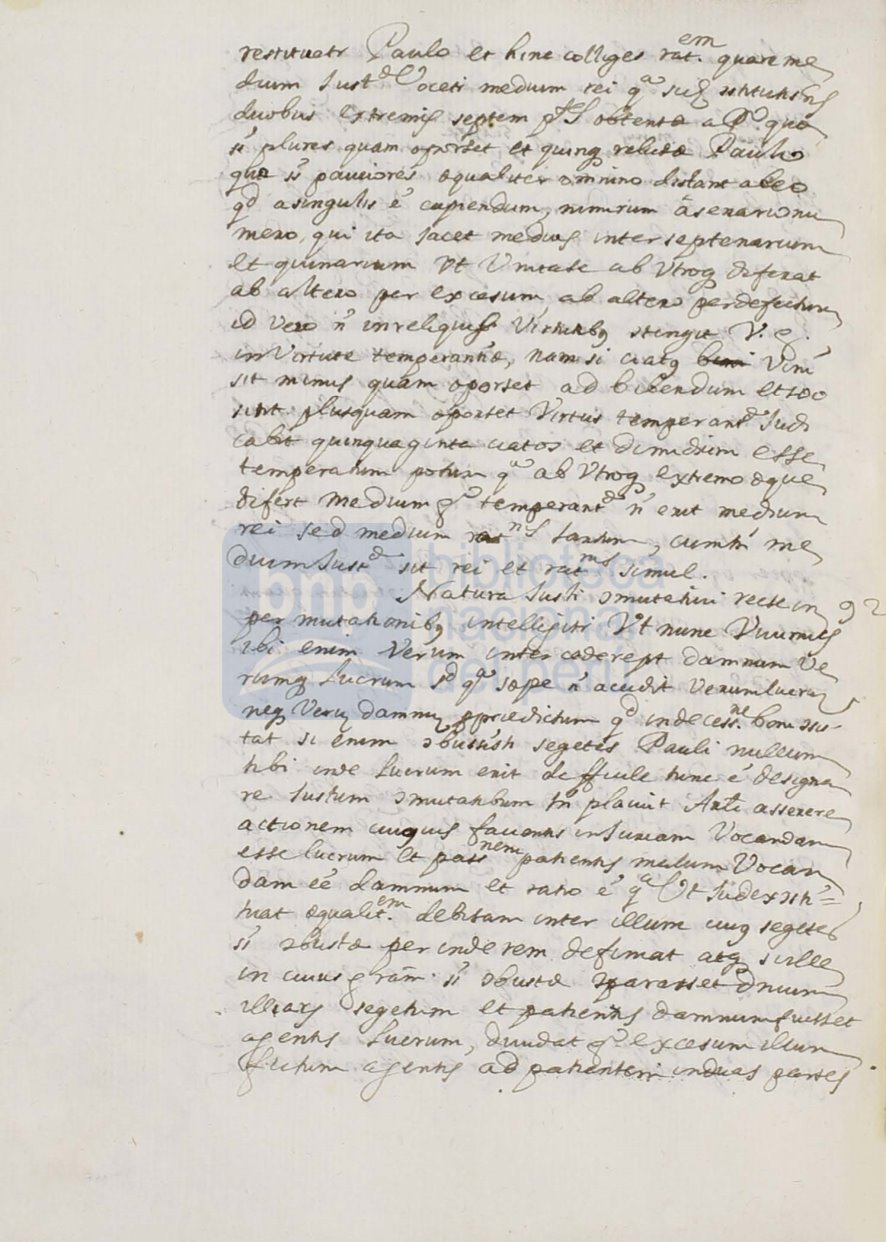 restituetr Paulo et hinc colliges rat.em quare me
dium Just.æ Vocetr medium rei q.a scilz cstituitr in
duobus extremis septem obtentæ a P.o quæ
st plures quam oportet et quinq relictæ Paulo
quæ st pauciores æqualiter omnino distant ab eo
qd a singulis e capiendum, nimirum a senario nu
mero, qui ita Jacet medius inter septenarium
et quinarium Vt Vnitate ab Vtroq diferat
ab altero per excesum ab altero per defectum
id vero n in reliquis Virtutibq ctingit V. g.
in Virtute temperantiæ, nam si ciatq Vini
sit minus quam oportet ad bibendum et 100
sint plusquam oportet Virtus temperantæ Judi
cabit quinquaginta ciatos et dimidium esse
temperatum potum q.a ab Vtroq extremo æque
difert medium temperantæ n erit medium
rei sed medium rat.nis tantum, cum tn me
dium Just.æ sit rei et rat.nis simul.
Natura Justi cmutativi recte in 92
per mutationibq intellegitr Vt nunc Vivimus
ibi enim Verum intercedere pt damnum Ve
rumq Lucrum sd q.a sæpe n accidit Verum lucrum
neq Verum damnum prædictum qd in decess.ne boni csis
tat si enim cbussisti segetes Pauli nullum
tibi inde Lucrum erit difficile tunc e designa
re Justum cmutatibum tn placuit Arli asserere
actionem cuiquis facientis inJuriam Vocandam
esse lucrum et pass.nem patientis malum Vocan
dam eé damnum et ratio e q.a Vt Judex csti=
tuat æqualit.em debitam inter illum cuiq segetes
st cbustæ perinde rem defimat atq si ille
in cuius gram st cbustæ cparasset dnium
illarq segetum et patientis damnum fuisset
agentis Lucrum, dividat excesum illum
fictum agentis ad patientem in duas partes